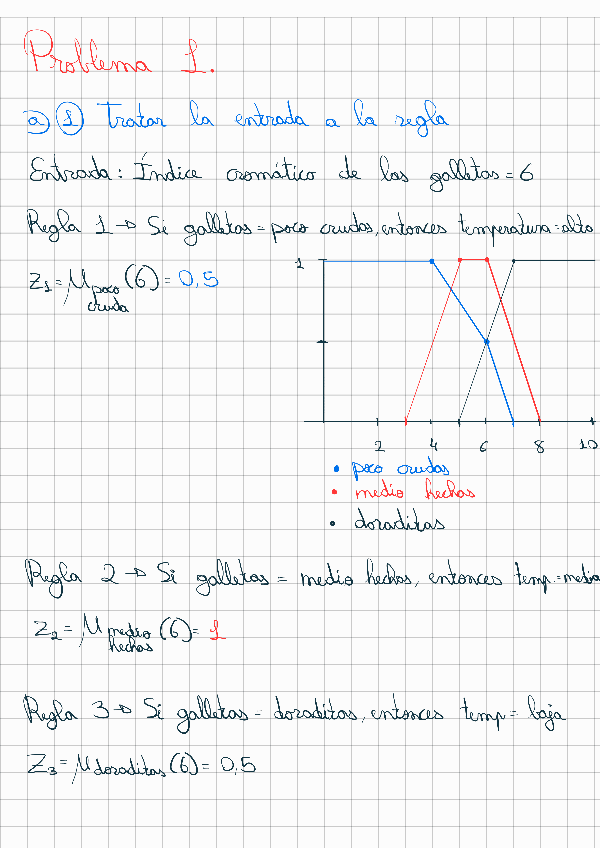 Problema 1.
a) 1 Tratar la entrada a la regla
Entrada: Índice cromático de las galletas = 6
Regla 1 → Si galletas = poco crudas, entonces temperatura = alta
Z1 = μ poco cruda (6) = 0,5
1
2 4 6 8 10
• poco crudas
• medio hechas
• doraditas
Regla 2 → Si galletas = medio hechas, entonces temp. = media
Z2 = μ medio hechas (6) = 1
Regla 3 → Si galletas = doraditas, entonces temp = baja
Z3 = μ doraditas (6) = 0,5